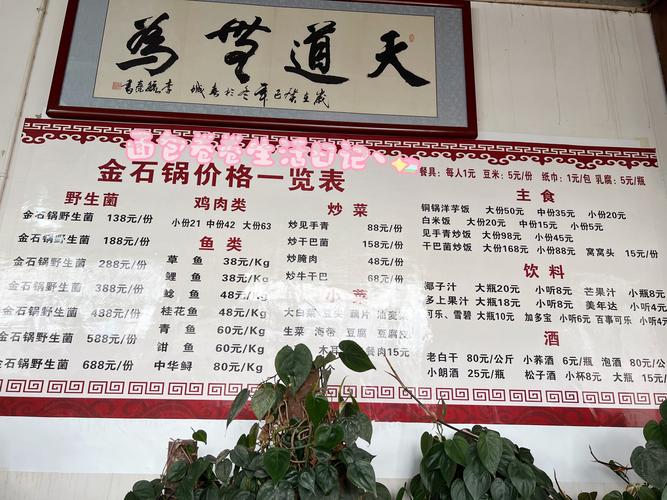 為無道天
歲在癸巳年冬於春城李毓亮書
面包卷卷生活日记
金石锅价格一览表
餐具：每人1元 豆米：5元/份 纸巾：1元/包 乳腐：5元/瓶
野生菌
金石锅野生菌 138元/份
金石锅野生菌 188元/份
金石锅野生菌 288元/份
金石锅野生菌 388元/份
金石锅野生菌 488元/份
金石锅野生菌 588元/份
金石锅野生菌 688元/份
鸡肉类
小份21 中份42 大份63
鱼类
草鱼 38元/Kg
鲤鱼 38元/Kg
鲶鱼 48元/Kg
桂花鱼 48元/Kg
青鱼 60元/Kg
钳鱼 60元/Kg
中华鲟 80元/Kg
炒菜
炒见手青 88元/份
炒干巴菌 158元/份
炒腌肉 48元/份
炒牛干巴 68元/份
小菜
大白菜 豆尖 藕片 油麦
生菜 海带 豆腐 豆腐皮
木耳 餐肉15元
个
主食
铜锅洋芋饭 大份50元 中份35元 小份20元
白米饭 大份20元 中份15元 小份5元
见手青炒饭 大份98元 小份45元
干巴菌炒饭 大份168元 小份88元 窝窝头 15元/份
饮料
椰子汁 大瓶20元 小听8元 芒果汁 小瓶8元
多上果汁 大瓶18元 小听8元 美年达 小听4元
可乐、雪碧 大瓶10元 加多宝 小听6元 百事可乐 小听
酒
老白干 80元/公斤 小荞酒 6元/瓶 泡酒 80元/公
小朗酒 25元/瓶 松子酒 小杯8元 大瓶 15元/